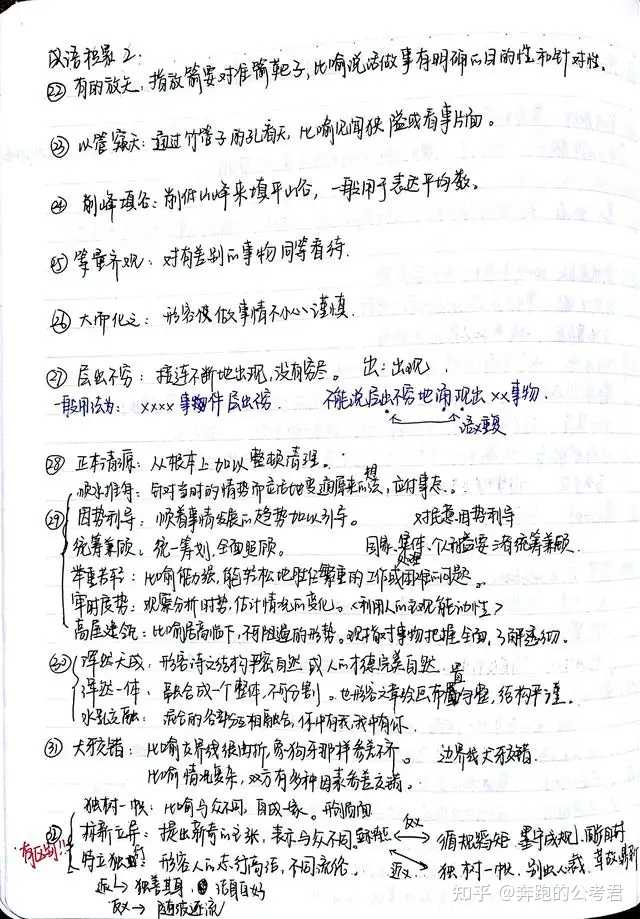 汉语积累2.
㉒ 有的放矢：指放箭要对准箭靶子，比喻说话做事有明确的目的性和针对性。
㉓ 以管窥天：通过竹管子的孔看天，比喻见闻狭隘或看事片面。
㉔ 削峰填谷：削低山峰来填平山谷，一般用于表达平均数。
㉕ 等量齐观：对有差别的事物同等看待.
㉖ 大而化之：形容做事情不小心谨慎.
㉗ 层出不穷：接连不断地出现，没有穷尽。 出：出现
一般用法为：xxxx事物件层出不穷. 不能说层出不穷地涌现出xx事物.
语义重复
㉘ 正本清源：从根本上加以整顿清理。
顺水推舟：针对当时的情势而立法地
想
应付事态。
㉙ 因势利导：顺着事情发展的趋势加以引导。 对民意因势利导
统筹兼顾：统一筹划，全面照顾。 国家、集体、个人利益要三者统筹兼顾.
处理
举重若轻：比喻能力强，能够轻松地胜任繁重的工作或困难的问题。
审时度势：观察分析时势，估计情况的变化。<利用人的主观能动性>
高屋建瓴：比喻居高临下，不可阻遏的形势。现指对事物把握全面，了解透彻.
㉚ 浑然天成：形容诗文结构严密自然或人的才德完美自然.
置
浑然一体：融合成一个整体，不可分割。也形容文章绘画布匀整，结构严谨。
水乳交融：混合的各部分互相融合，你中有我我中有你.
㉛ 犬牙交错：比喻交界线很曲折，象狗牙那样参差不齐。 边界线犬牙交错.
比喻情况复杂，双方有多种因素参差交错。
独树一帜：比喻与众不同，自成一家。
有区别!!
㉜ 标新立异：提出新奇的主张，表示与众不同。 反义 循规蹈矩 墨守成规
特立独行：形容人的志行高洁，不同流俗. 近义 独树一帜、别出心裁
近→独善其身 洁身自好
反义→随波逐流
知乎 @奔跑的公考君